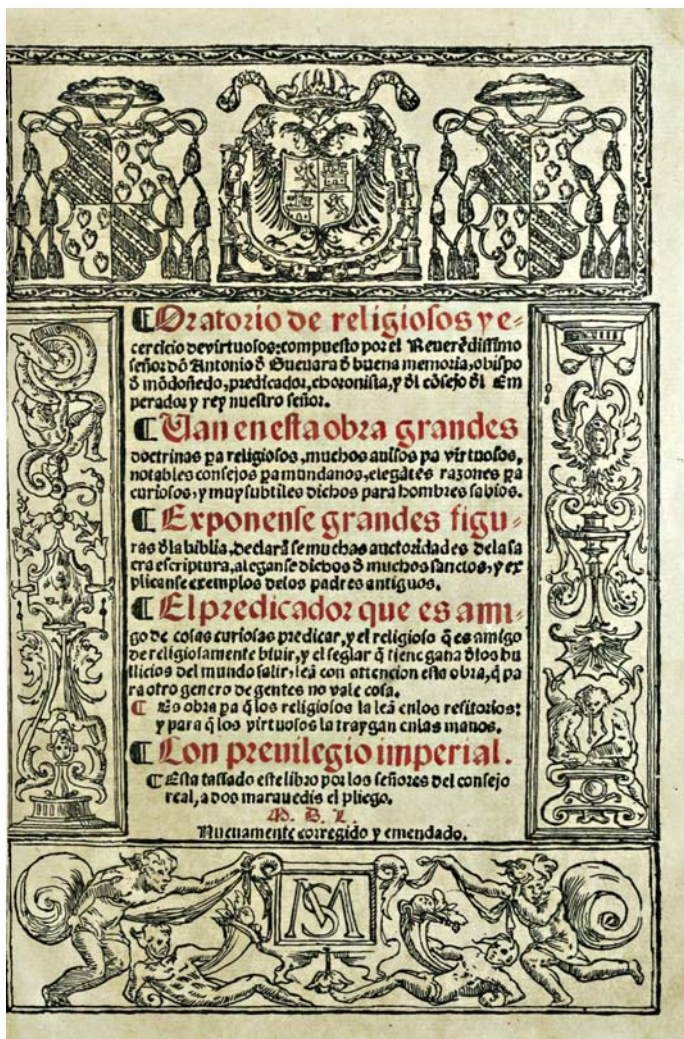 PLVS
VLTRA
¶ Oratorio de religiosos y e-
cercicio de virtuosos: compuesto por el Reuerēdissimo
señor dō Antonio đ Gueuara đ buena memoria, obispo
đ mōdoñedo, predicador, choronista, y đl cōsejo đl Em
perador y rey nuestro señor.
¶ Uan en esta obra grandes
doctrinas pa religiosos, muchos auisos pa virtuosos,
notables consejos pa mundanos, elegātes razones pa
curiosos, y muy subtiles dichos para hombres sabios.
¶ Exponense grandes figu-
ras đla biblia, declarāse muchas auctoridades dela sa
cra escriptura, aleganse dichos đ muchos sanctos, y ex
plicanse exemplos delos padres antiguos.
¶ El predicador que es ami-
go de cosas curiosas predicar, y el religioso q̄ es amigo
de religiosamente biuir, y el seglar q̄ tiene gana đlos bu
llicios del mundo salir, leā con attencion esta obra, q̄ pa
ra otro genero de gentes no vale cosa.
¶ Es obra pa q̄ los religiosos la leā enlos refitorios:
y para q̄ los virtuosos la traygan enlas manos.
¶ Con preuilegio imperial.
¶ Esta tassado este libro por los señores del consejo
real, a dos marauedis el pliego.
M. D. L.
Nueuamente corregido y emendado.